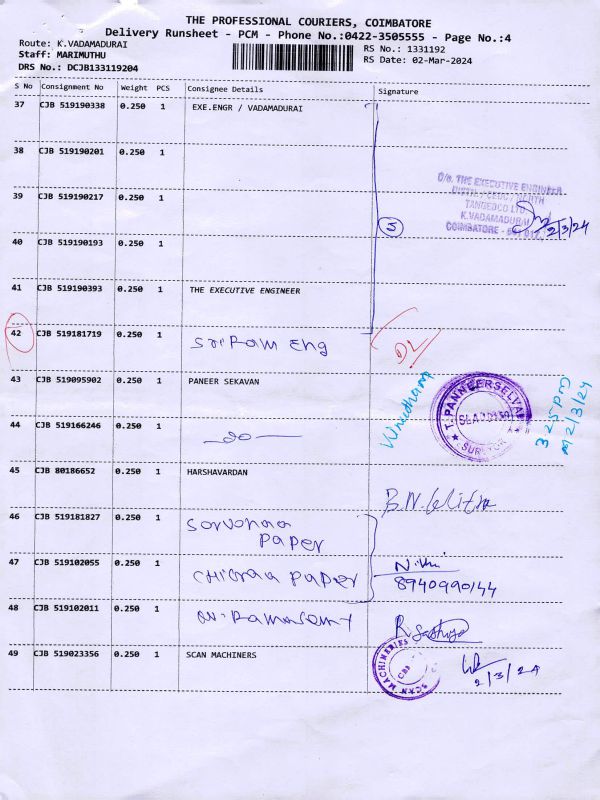 THE PROFESSIONAL COURIERS, COIMBATORE
Delivery Runsheet - PCM - Phone No.:0422-3505555 - Page No.:4
Route: K.VADAMADURAI
Staff: MARIMUTHU
DRS No.: DCJB133119204
RS No.: 1331192
RS Date: 02-Mar-2024
S No Consignment No Weight PCS Consignee Details Signature
37 CJB 519190338 0.250 1 EXE.ENGR / VADAMADURAI
38 CJB 519190201 0.250 1
39 CJB 519190217 0.250 1
O/o. THE EXECUTIVE ENGINEER
NORTH
TANGEDCO LTD.
K.VADAMADURAI
COIMBATORE - 641 017.
2/3/24
5
40 CJB 519190193 0.250 1
41 CJB 519190393 0.250 1 THE EXECUTIVE ENGINEER
42 CJB 519181719 0.250 1 Sri Ram Eng
43 CJB 519095902 0.250 1 PANEER SEKAVAN
T. PANNEERSELVAM
SURVEYOR
3 25 PM
2/3/24
44 CJB 519166246 0.250 1 -do-
45 CJB 80186652 0.250 1 HARSHAVARDAN
46 CJB 519181827 0.250 1 Sarvonaa
Paper
47 CJB 519102055 0.250 1 Chitraa Paper
8940990144
48 CJB 519102011 0.250 1
49 CJB 519023356 0.250 1 SCAN MACHINERS
SCAN MACHINERIES
2/3/24